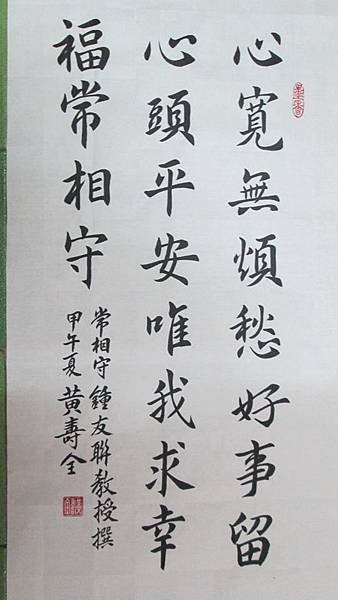 心寬無煩愁好事留
心頭平安唯我求幸
福常相守
常相守鍾友聯教授撰
甲午夏黃壽全